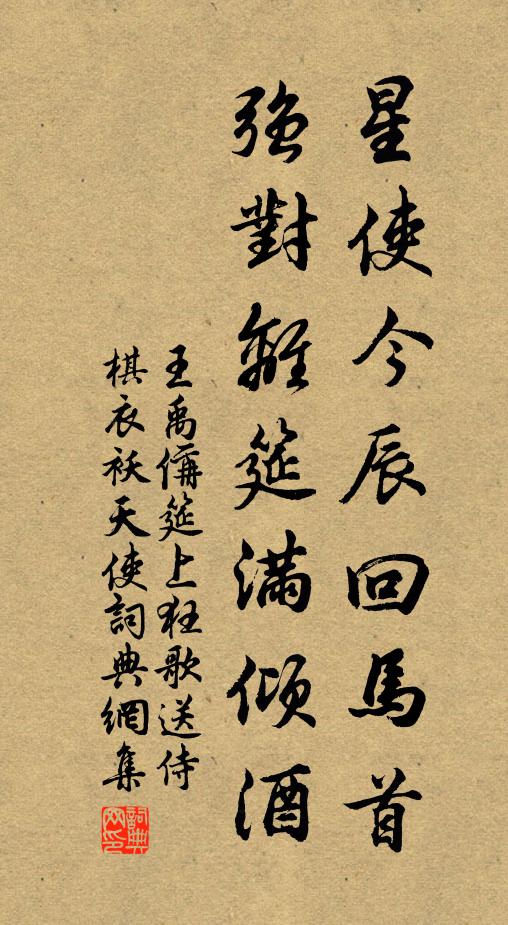 星使今辰回馬首
強對離筵滿傾酒
王禹偁筵上狂歌送侍
棋衣襖天使詞典網集
詞典網印